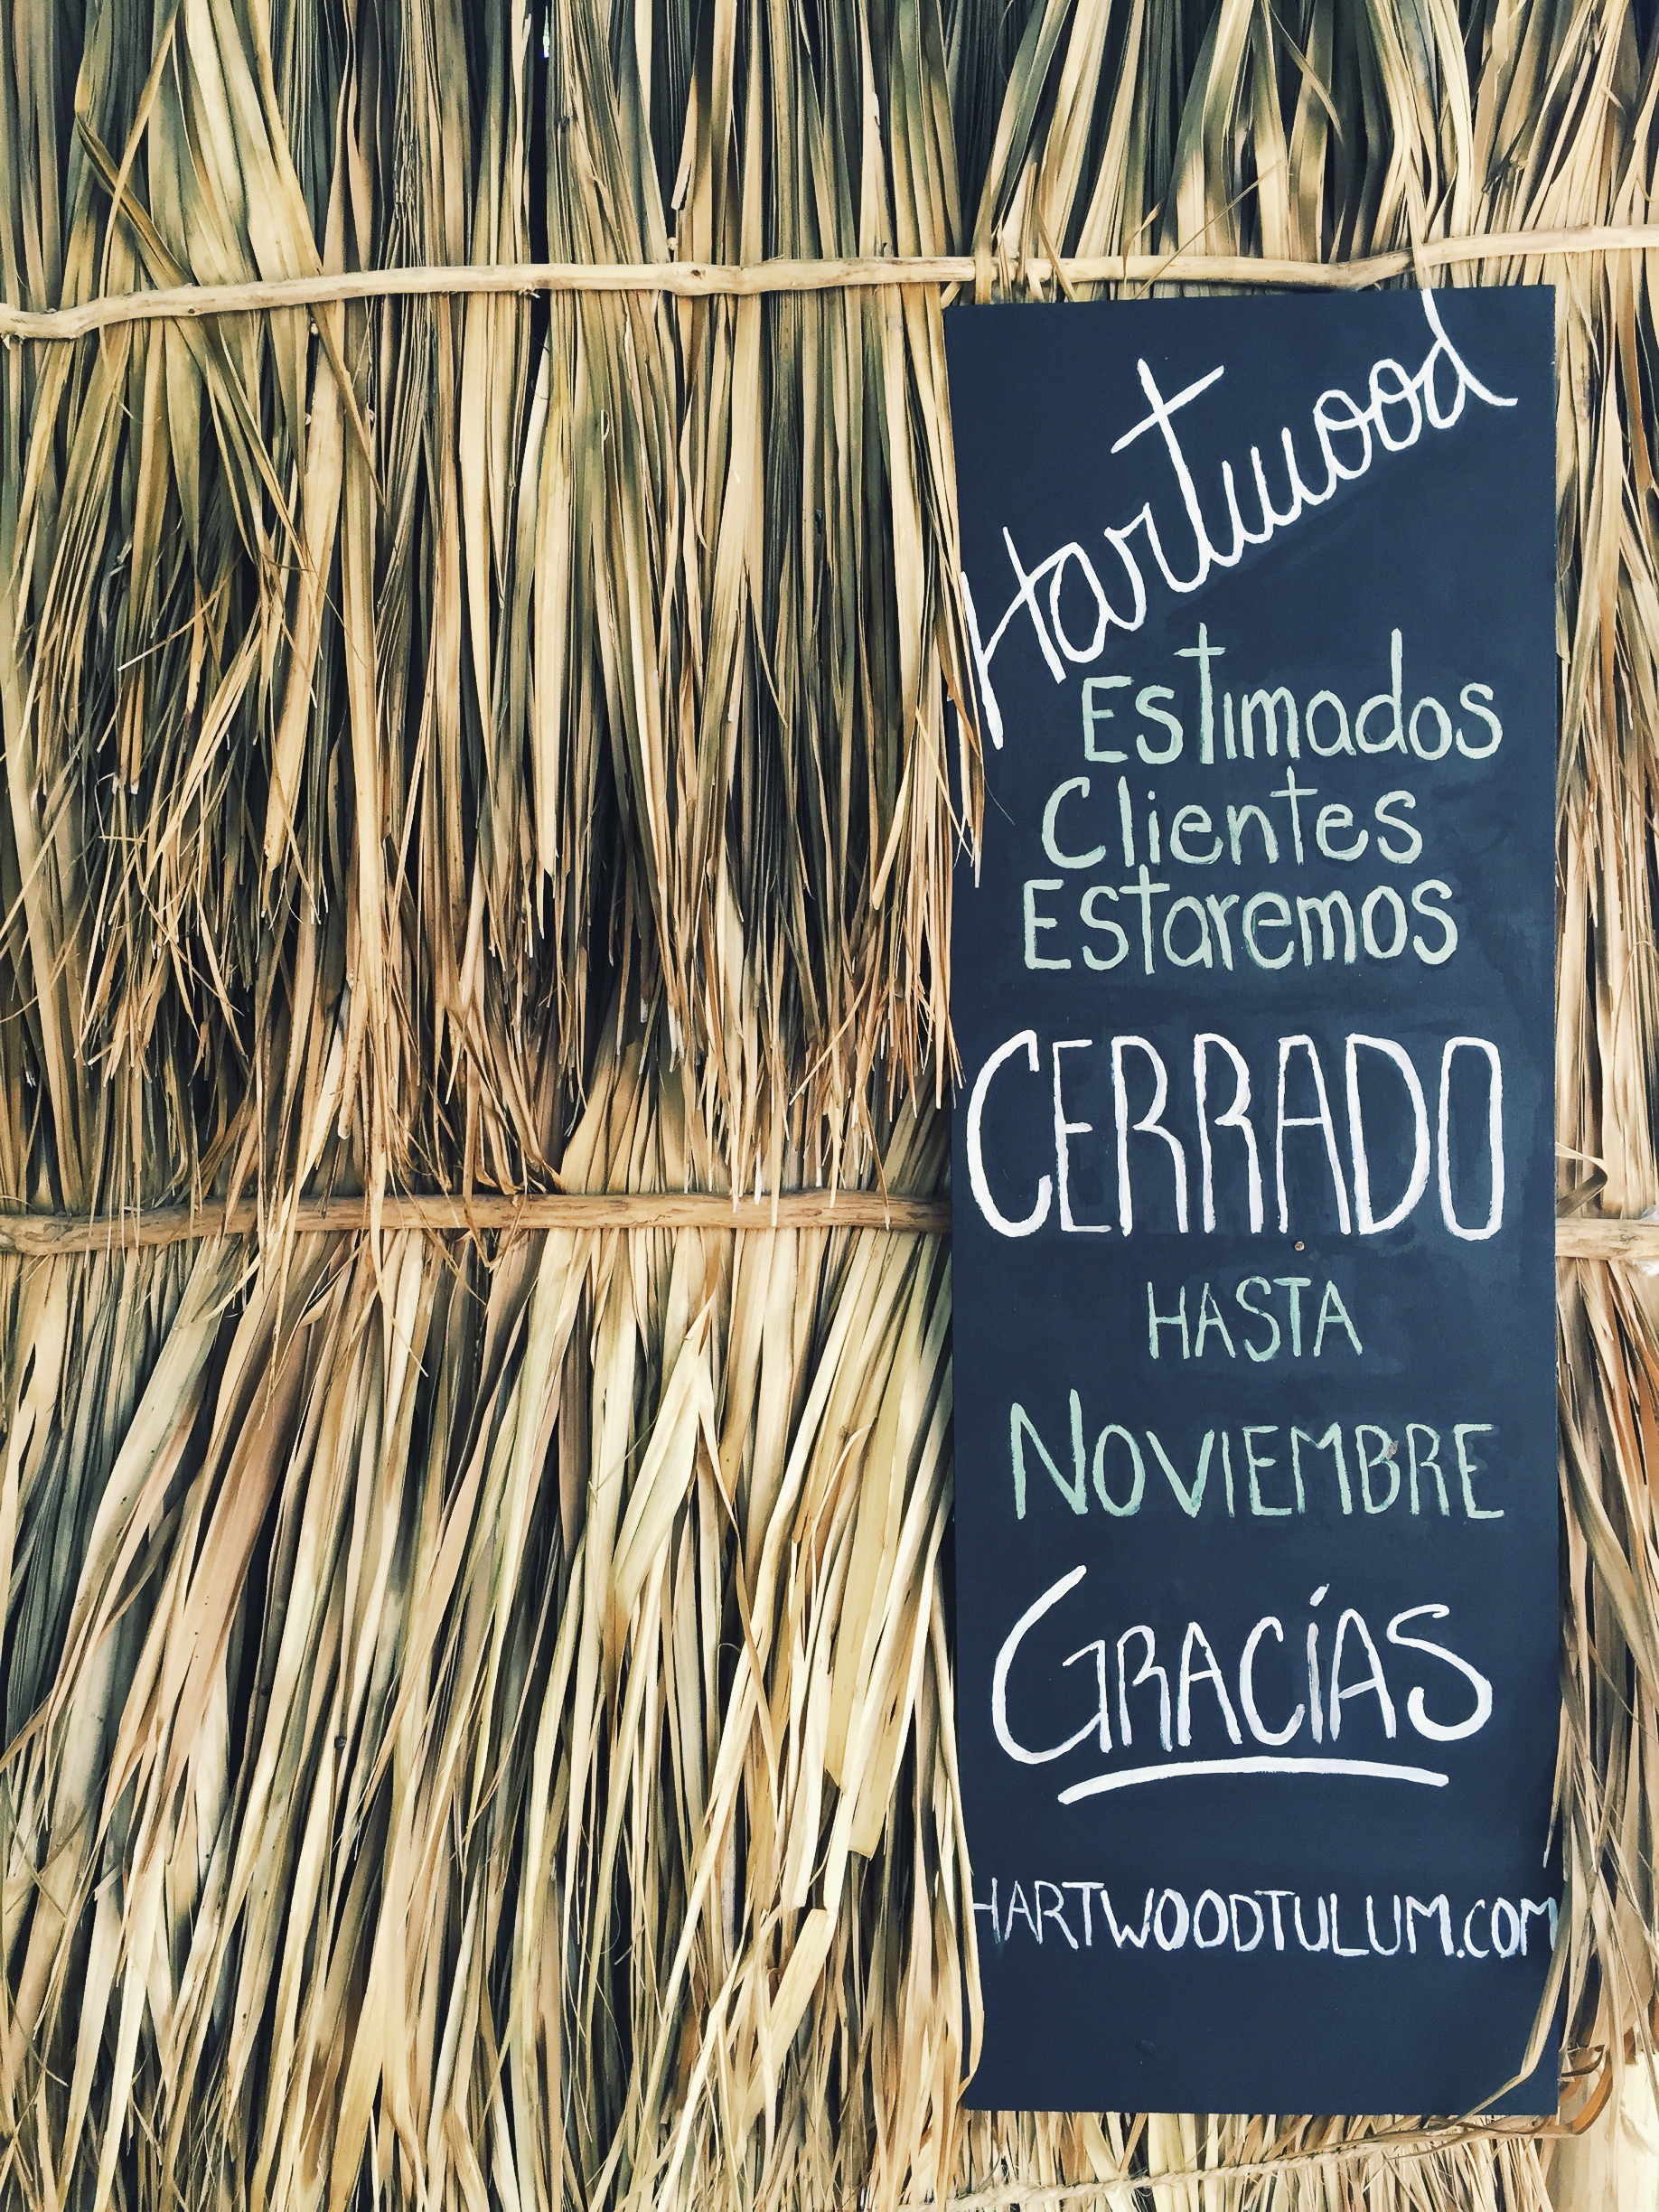 Hartwood
Estimados
Clientes
Estaremos
CERRADO
HASTA
NOVIEMBRE
GRACÍAS
HARTWOODTULUM.COM